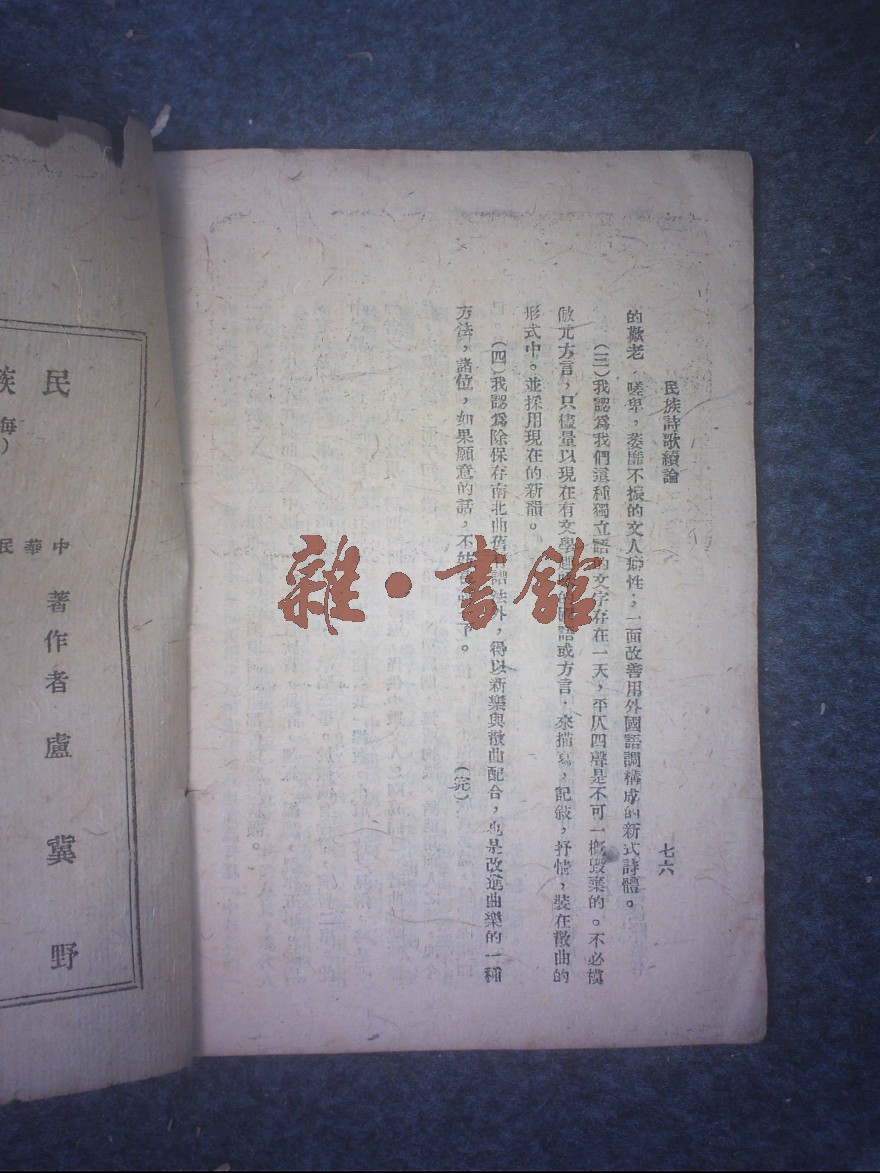 民族詩歌續論
七六
的歎老 嗟卑，萎靡不振的文人癖性；一面改善用外國語調構成的新式詩體。
(三)我認爲我們這種獨立語的文字存在一天，平仄四聲是不可一概毀棄的。不必模
倣元方言，只儘量以現在有文學 語或方言．來描寫，記敍，抒情，裝在散曲的
形式中。並採用現在的新韻。
(四)我認爲除保存南北曲舊 譜法外，得以新樂與散曲配合，也是改進曲樂的一種
方法，諸位，如果願意的話，不妨 下。
(完)
雜·書館
民族
海
)
中華民
著作者 盧冀野